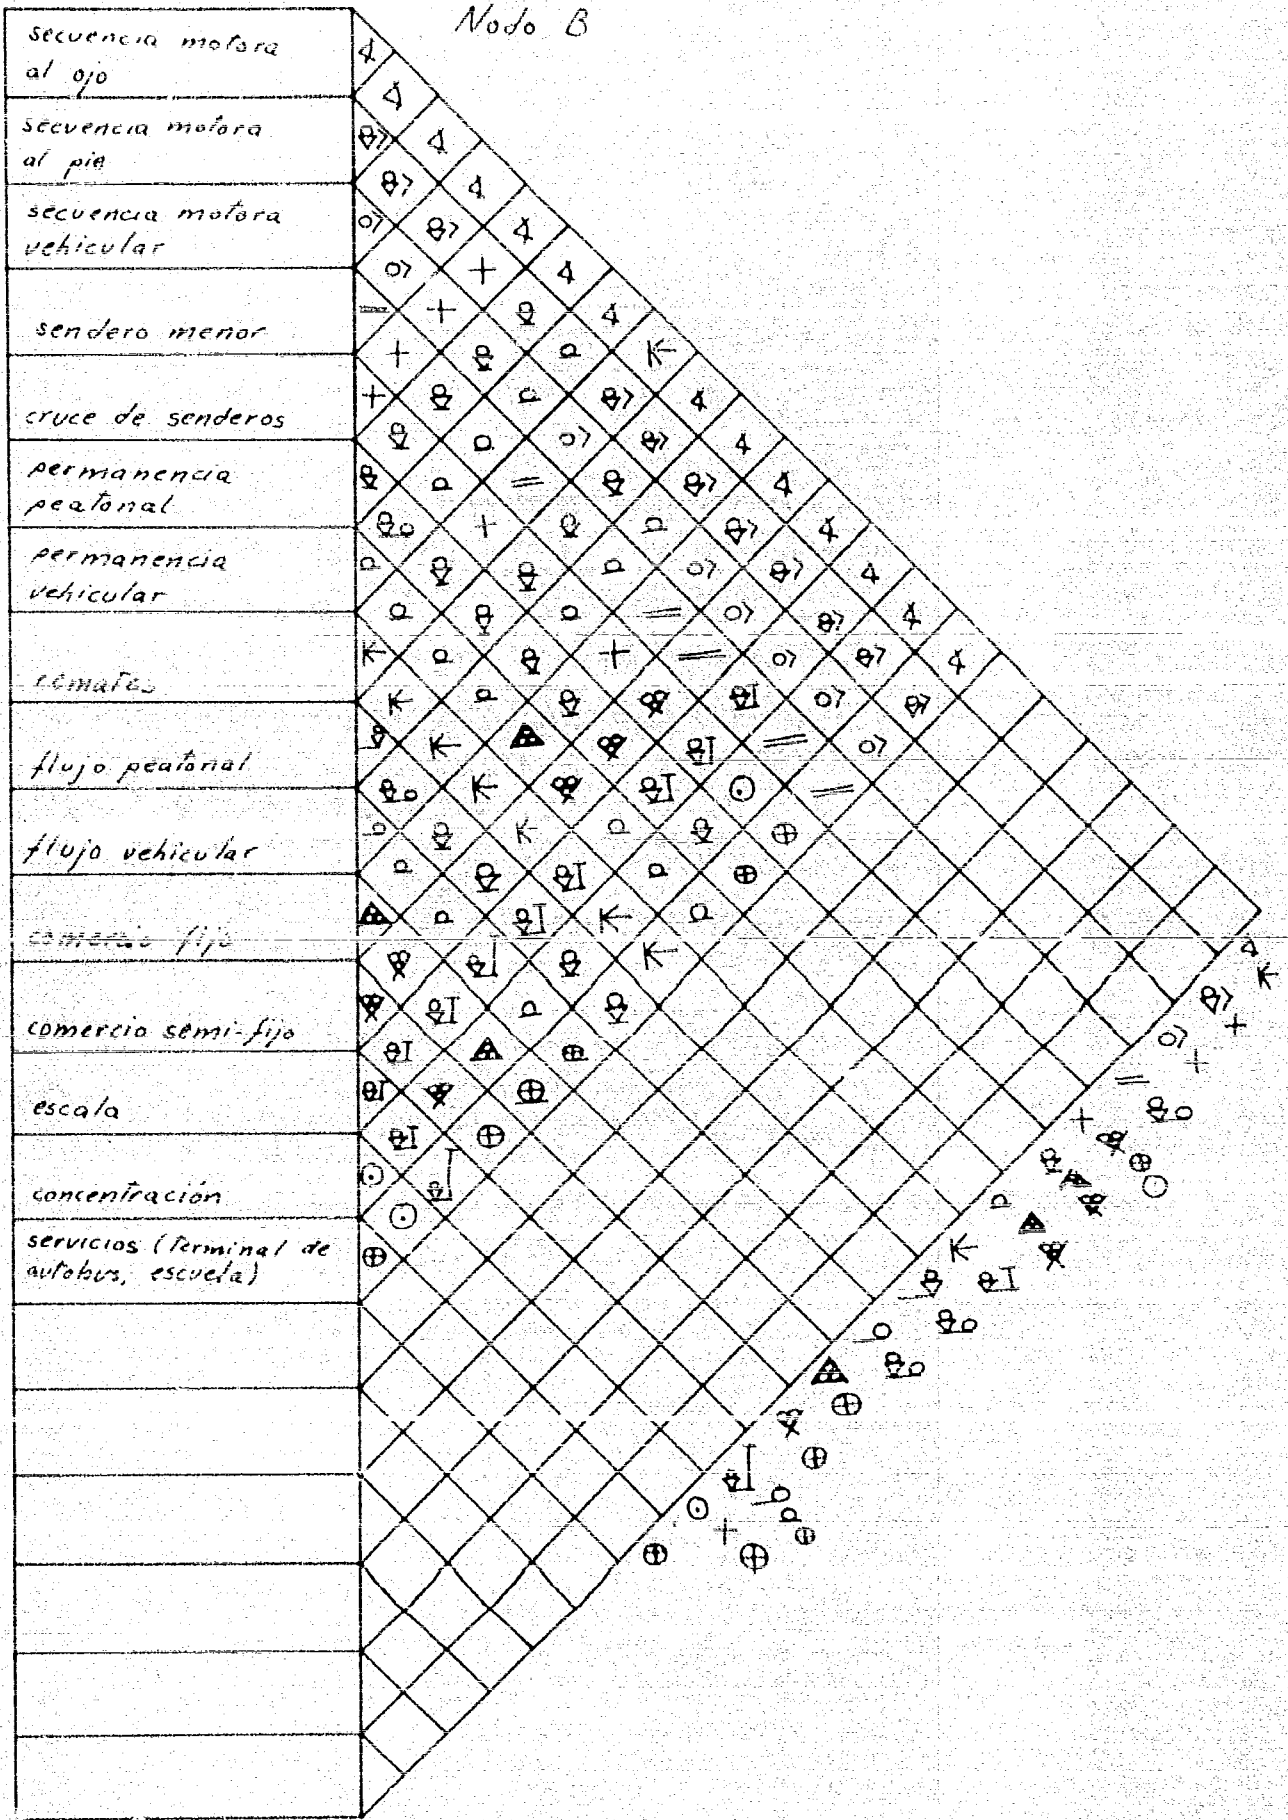 Nodo B
secuencia motora
al ojo
secuencia motora
al pie
secuencia motora
vehicular
sendero menor
cruce de senderos
permanencia
peatonal
permanencia
vehicular
remates
flujo peatonal
flujo vehicular
comercio fijo
comercio semi-fijo
escala
concentración
servicios (terminal de
autobus, escuela)